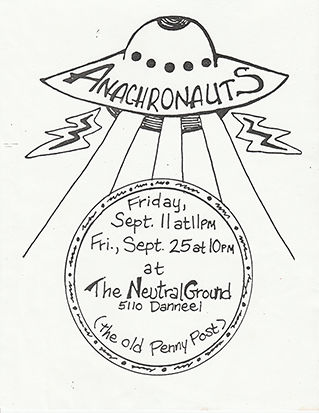 ANACHRONAUTS
Friday,
Sept. 11 at 11pm
Fri., Sept. 25 at 10pm
at
The Neutral Ground
5110 Danneel
(the old Penny Post)